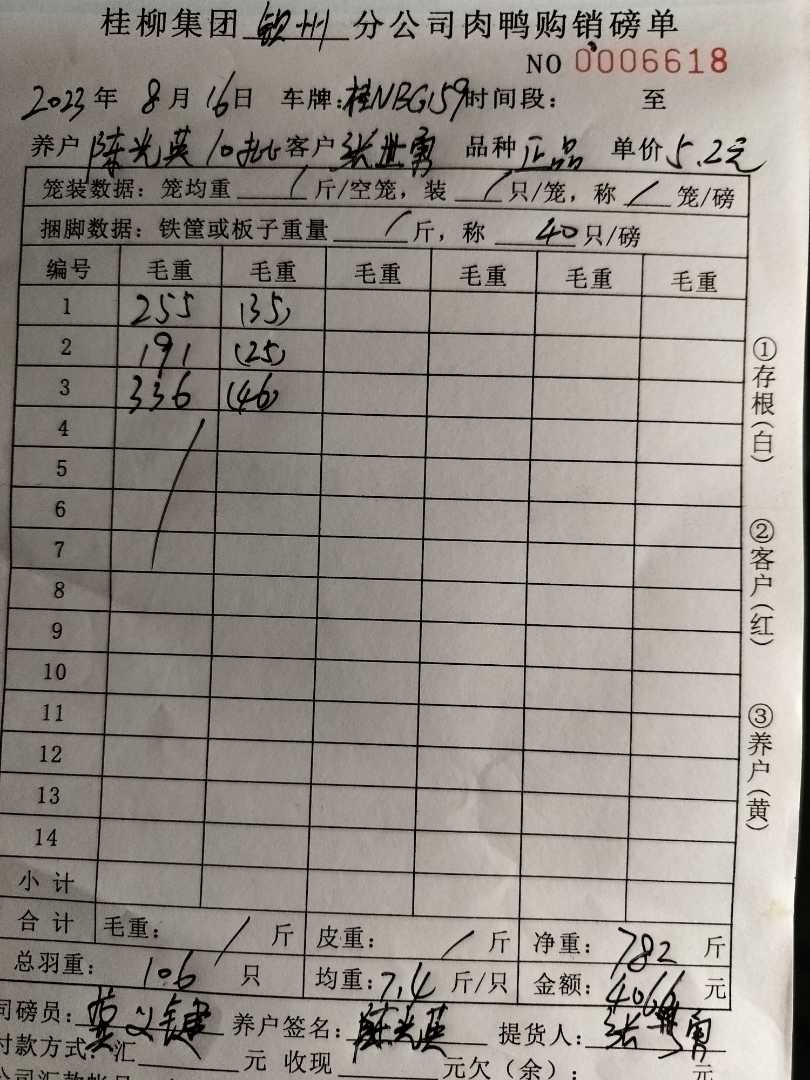 桂柳集团 钦州 分公司肉鸭购销磅单
NO 0006618
2023年 8月 16日 车牌:桂NBG159时间段: 至
养户 陈光英 10批 客户 张世勇 品种 正品 单价 5.2元
笼装数据:笼均重 / 斤/空笼,装 / 只/笼,称 / 笼/磅
捆脚数据:铁筐或板子重量 / 斤,称 40 只/磅
编号 毛重 毛重 毛重 毛重 毛重 毛重
1 255 (35)
2 191 (25)
3 336 (46)
4
5
6
7
8
9
10
11
12
13
14
小计
合计 毛重: / 斤 皮重: / 斤 净重: 782 斤
总羽重: 106 只 均重: 7.4 斤/只 金额: 4066 元
司磅员: 养户签名: 陈光英 提货人: 张世勇
付款方式:汇 元 收现 元欠(余): 元
①存根(白)
②客户(红)
③养户(黄)